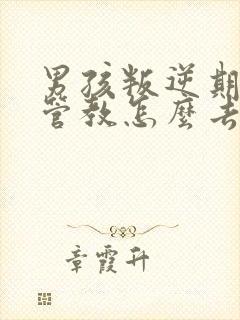 男孩叛逆期
管教怎麼去
章霞升